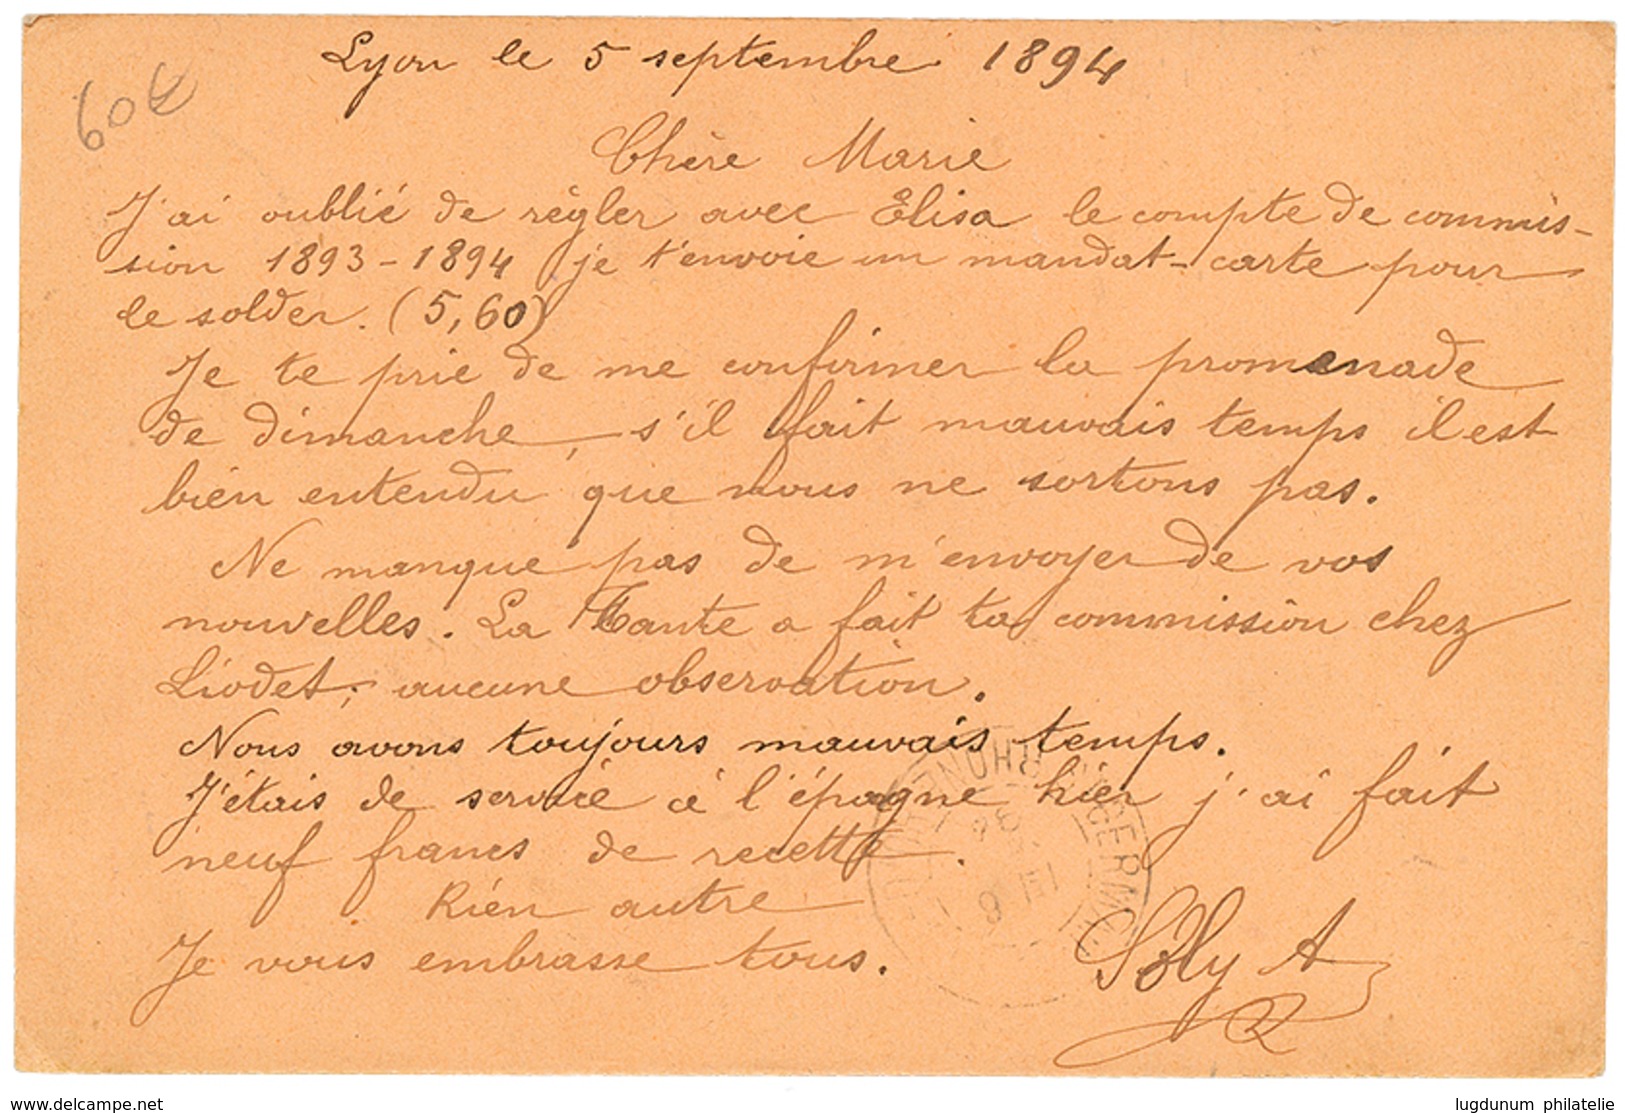 60€
Lyon le 5 septembre 1894
Chère Marie
J'ai oublié de règler avec Elisa le compte de commis-
sion 1893-1894 je t'envoie un mandat-carte pour
le solder. (5,60)
Je te prie de me confirmer la promenade
de dimanche, s'il fait mauvais temps il est
bien entendu que nous ne sortons pas.
Ne manque pas de m'envoyer de vos
nouvelles. La Tante a fait ta commission chez
Liodet; aucune observation.
Nous avons toujours mauvais temps.
J'étais de service à l'épagne hier j'ai fait
neuf francs de recette.
Rien autre
Je vous embrasse tous.
Soly A
delcampe.net
lugdunum philatelie